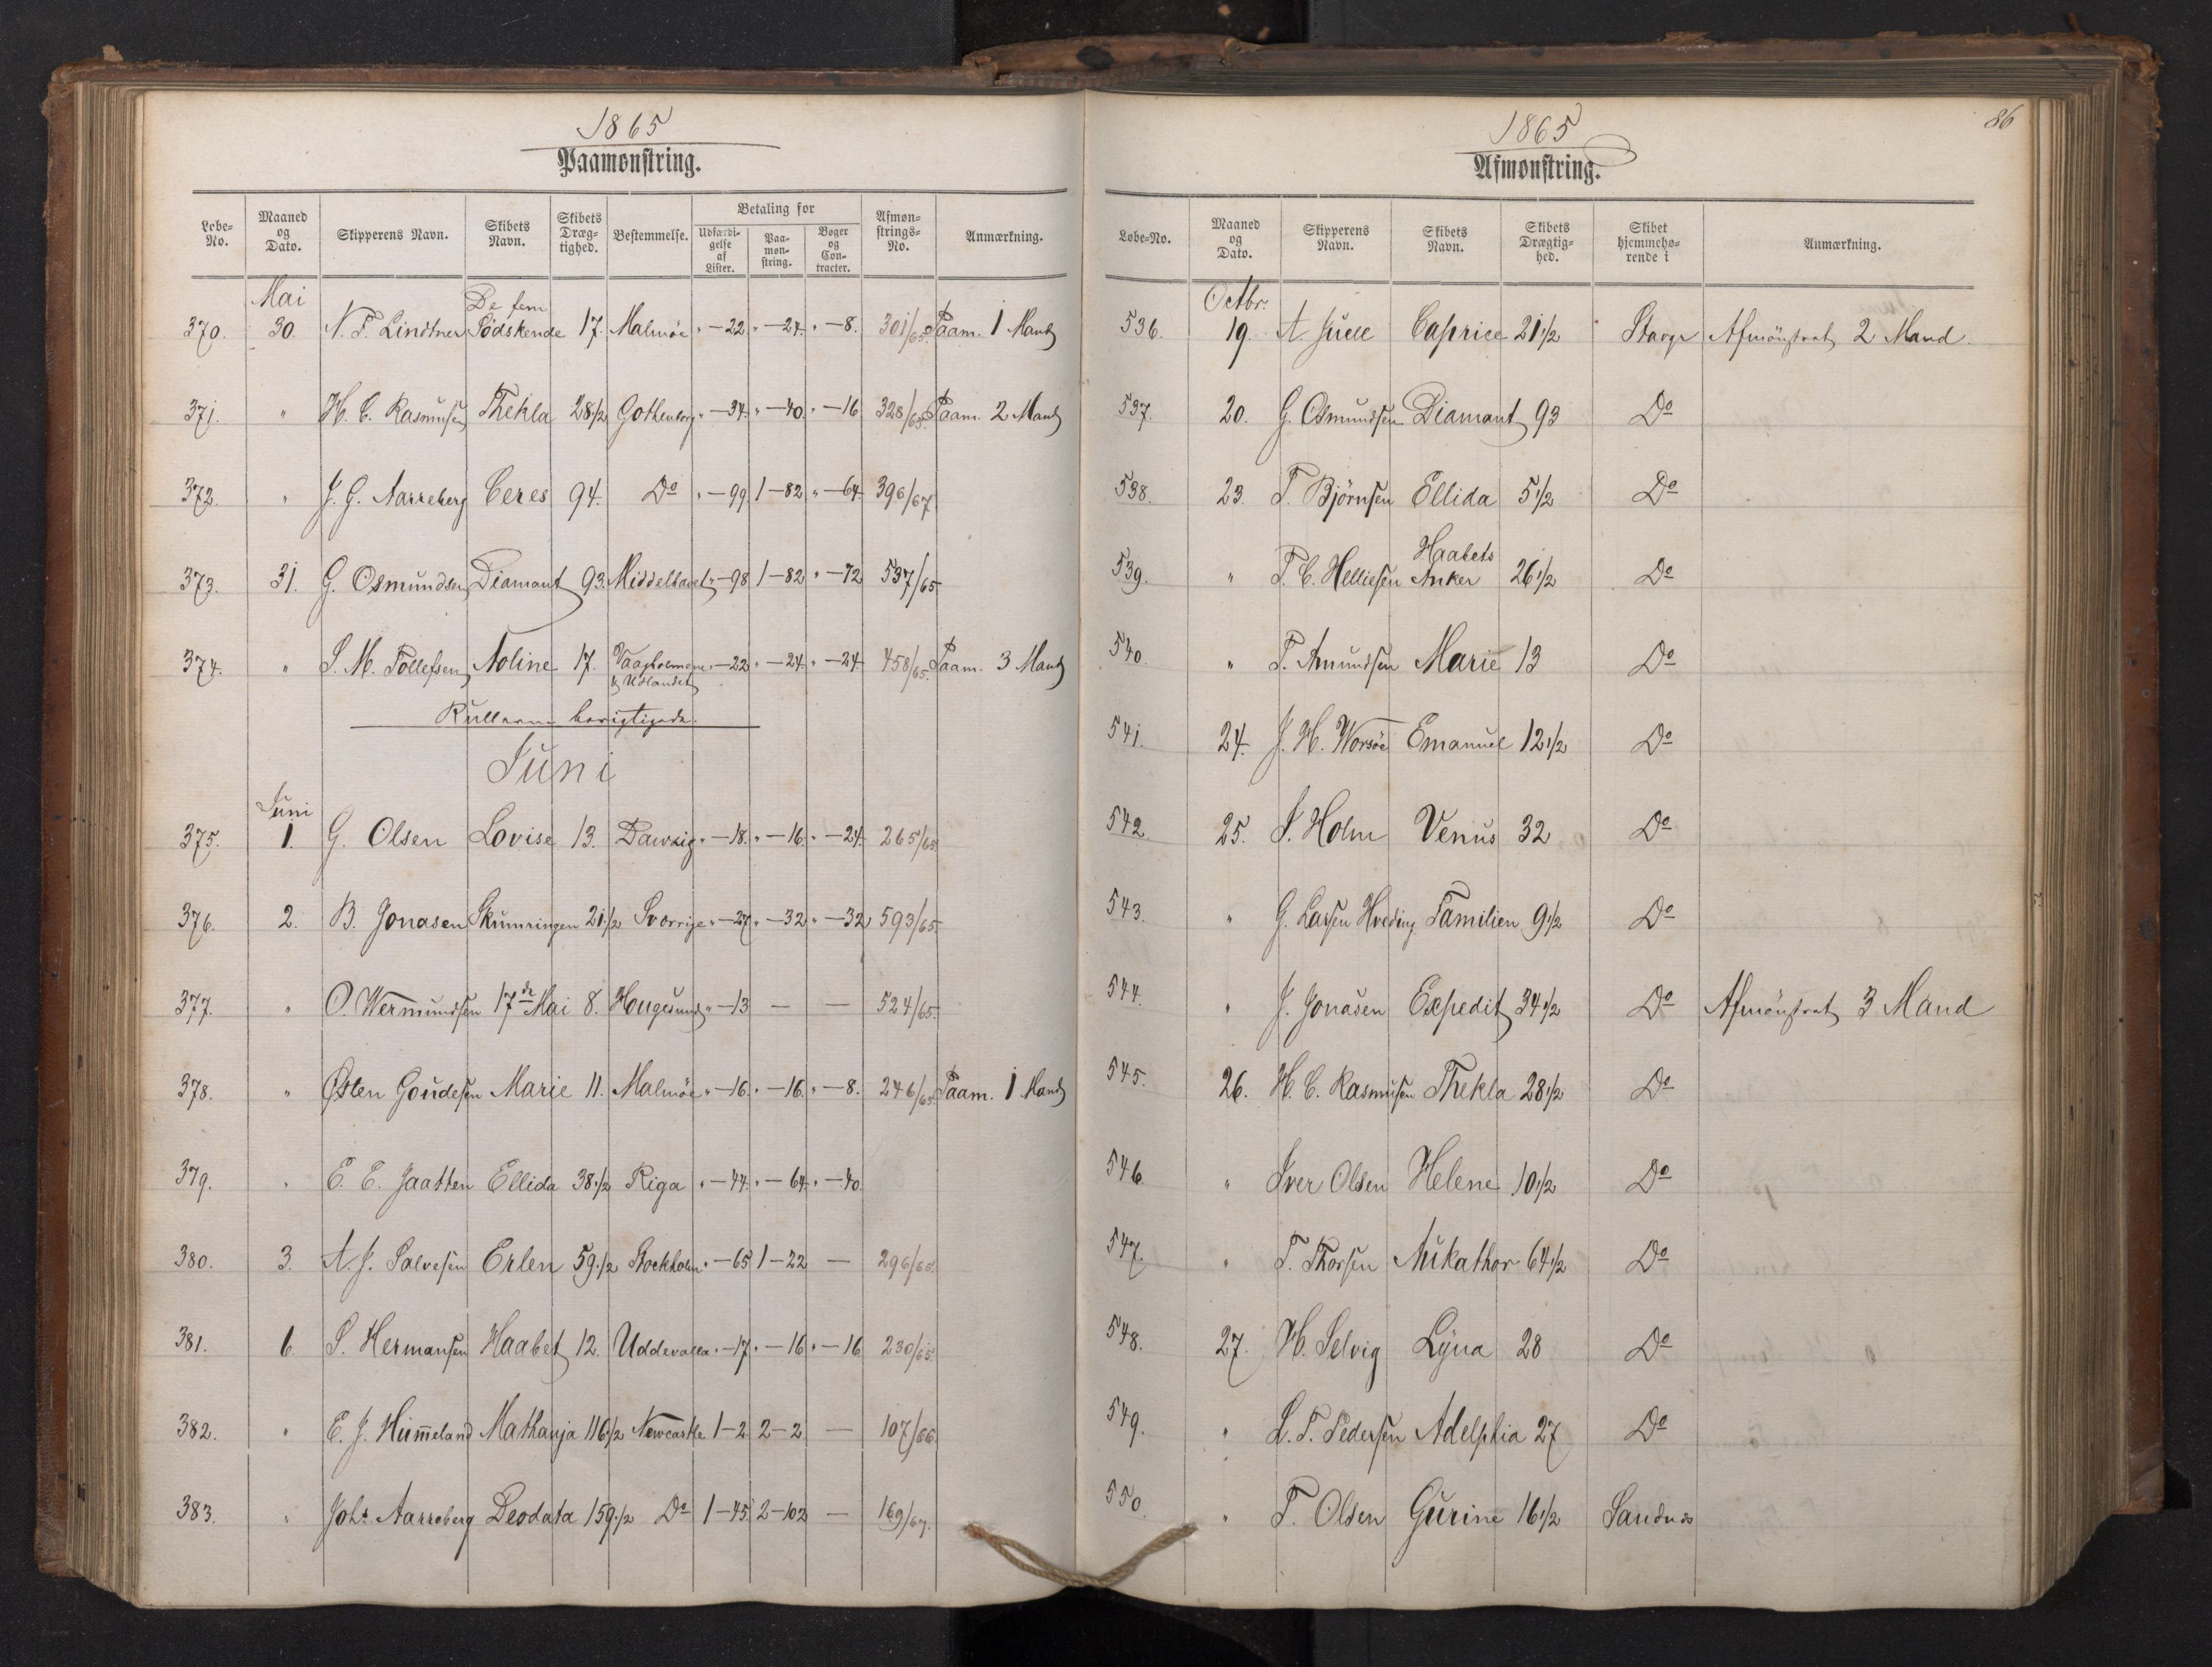 1865
Paamønstring.
Løbe-No. Maaned og Dato. Skipperens Navn. Skibets Navn. Skibets Dræg-tighed. Bestemmelse. Betaling for Udfærdi-gelse af Lister. Paa-møn-string. Bøger og Con-tracter. Afmøn-strings-No. Anmærkning.
Mai De fem
370. 30. N. T. Lindtner Södskende 17. Malmöe " - 22. " - 24. " - 8. 301/65. Paam. 1 Mand
371. " H. C. Rasmussen Thekla 28 1/2 Gothenborg " - 34. " - 40. " - 16. 328/65. Paam. 2 Mand
372. " J. G. Aarreberg Ceres 94. Do " - 99. 1 - 82 " - 64. 396/67
373. 31. G. Osmundsen Diamant 93. Middelhavet " - 98 1 - 82 " - 72 537/65
374. " S. M. Tollefsen Noline 17. Vaagholmene " - 22 " - 24. " - 24. 458/65. Paam. 3 Mand
& Udlandet
Rullerne berigtigede.
Juni
Juni
375. 1. G. Olsen Lovise 13. Danzig " - 18. " - 16. " - 24. 265/65.
376. 2. B. Jonasen Skumringen 21 1/2 Sverrige " - 27. " - 32 " - 32 593/65.
377. " O. Wermundsen 17de Mai 8. Hougesund " - 13 - - 524/65.
378. " Østen Goudesen Marie 11. Malmöe " - 16. " - 16. " - 8. 246/65. Paam. 1 Mand
379. " E. E. Jaatten Ellida 38 1/2 Riga " - 44. " - 64. " - 40.
380. 3. A. J. Salvesen Erlen 59 1/2 Stockholm " - 65 1 - 22 - 296/65.
381. 6. S. Hermansen Haabet 12. Uddevalla " - 17. " - 16 " - 16 230/65.
382. " E. J. Hummeland Mathanja 116 1/2 Newcastle 1 - 2. 2 - 2. - 107/66.
383. " Johs. Aarreberg Deodata 159 1/2 Do 1 - 45. 2 - 102 - 169/67.
86
1865
Afmønstring.
Løbe-No. Maaned og Dato. Skipperens Navn. Skibets Navn. Skibets Drægtig-hed. Skibet hjemmehø-rende i Anmærkning.
Octbr.
536. 19. A. Juell Caprice 21 1/2 Stavgr Afmönstret 2 Mand.
537. 20. G. Osmundsen Diamant 93 Do
538. 23. T. Björnsen Ellida 5 1/2 Do
Haabets
539. " T. C. Helliesen Anker 26 1/2 Do
540. " T. Amundsen Marie 13 Do
541. 24. J. H. Worsöe Emanuel 12 1/2 Do
542. 25. J. Holm Venus 32 Do
543. " G. Larsen Hveding Familien 9 1/2 Do
544. " J. Jonasen Expedit 34 1/2 Do Afmönstret 3 Mand
545. 26. H. C. Rasmusen Thekla 28 1/2 Do
546. " Iver Olsen Helene 10 1/2 Do
547. " T. Thorsen Nikathor 64 1/2 Do
548. 27. H. Selvig Lyna 28 Do
549. " L. P. Pedersen Adelphia 27 Do
550. " T. Olsen Gurine 16 1/2 Sandnes